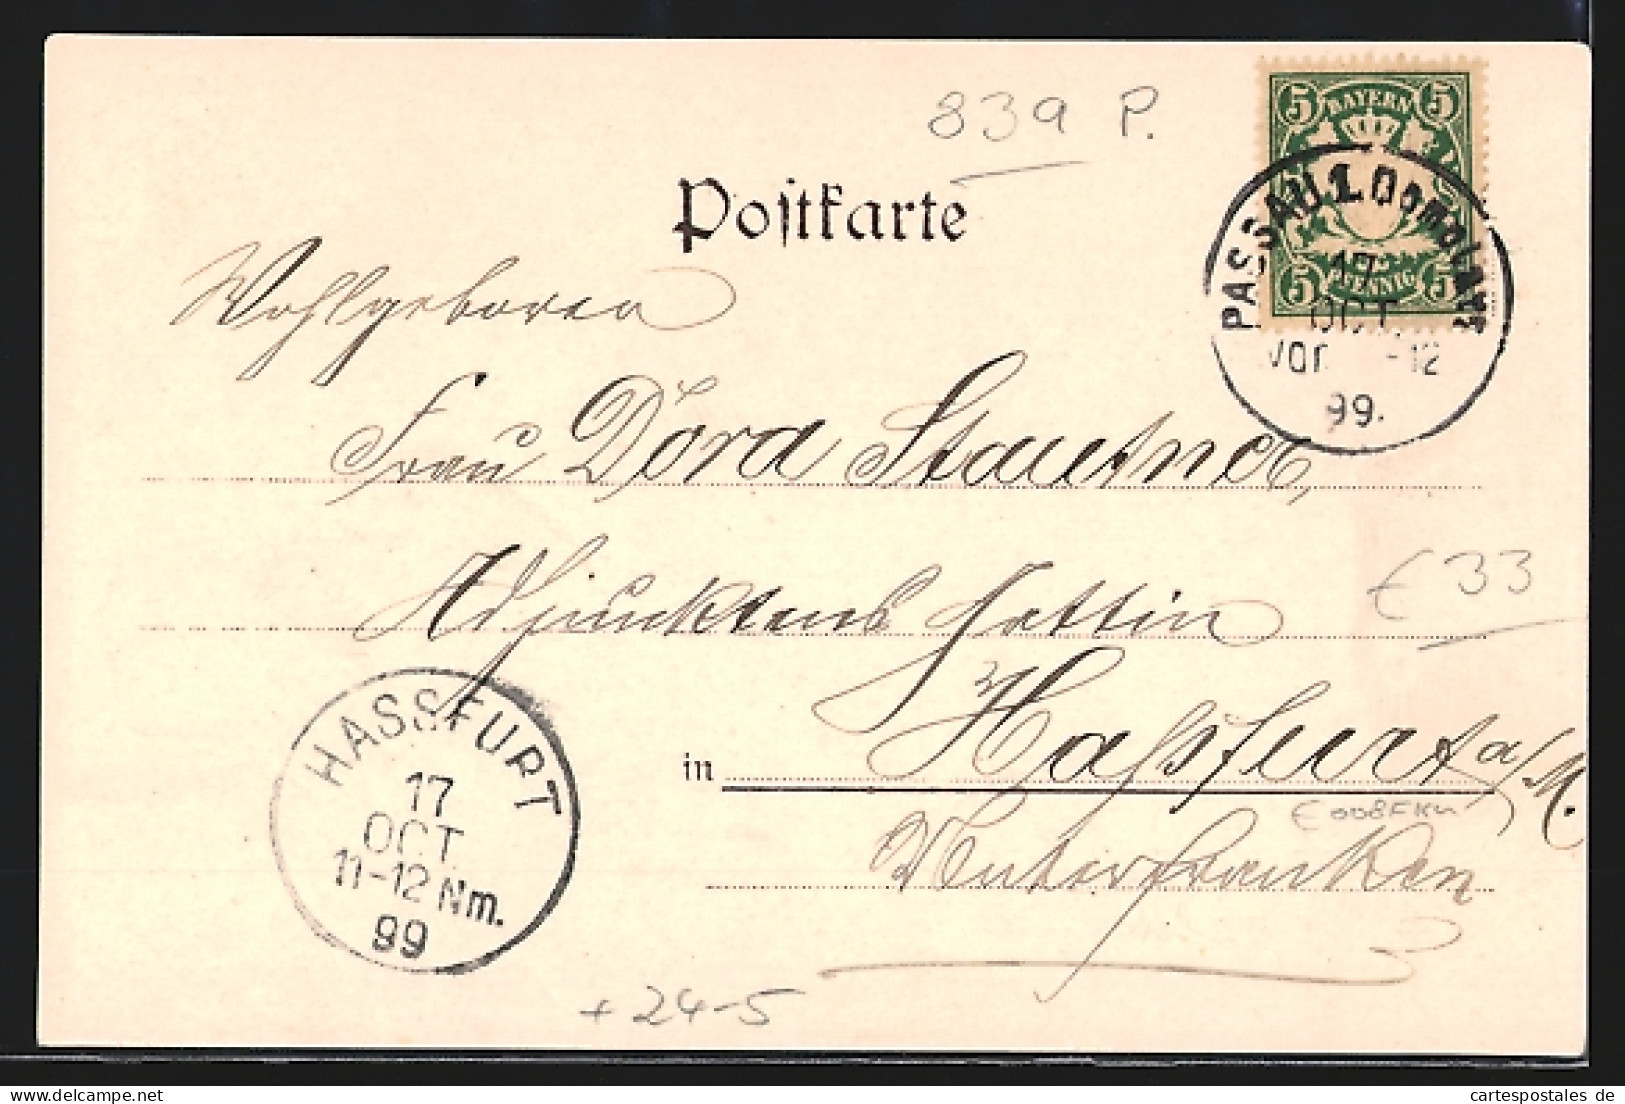 839 P.
5 BAYERN 5
5 PFENNIG 5
PASSAU 1.
17
OCT.
Vor. -12
99.
Postkarte
Wohlgeboren
Frau Dora
Adjunktens Gattin
€ 33
in Hassfurt a/M.
Unterfranken
HASSFURT
17
OCT.
11-12 Nm.
99
+24-5
www.cartespostales.de